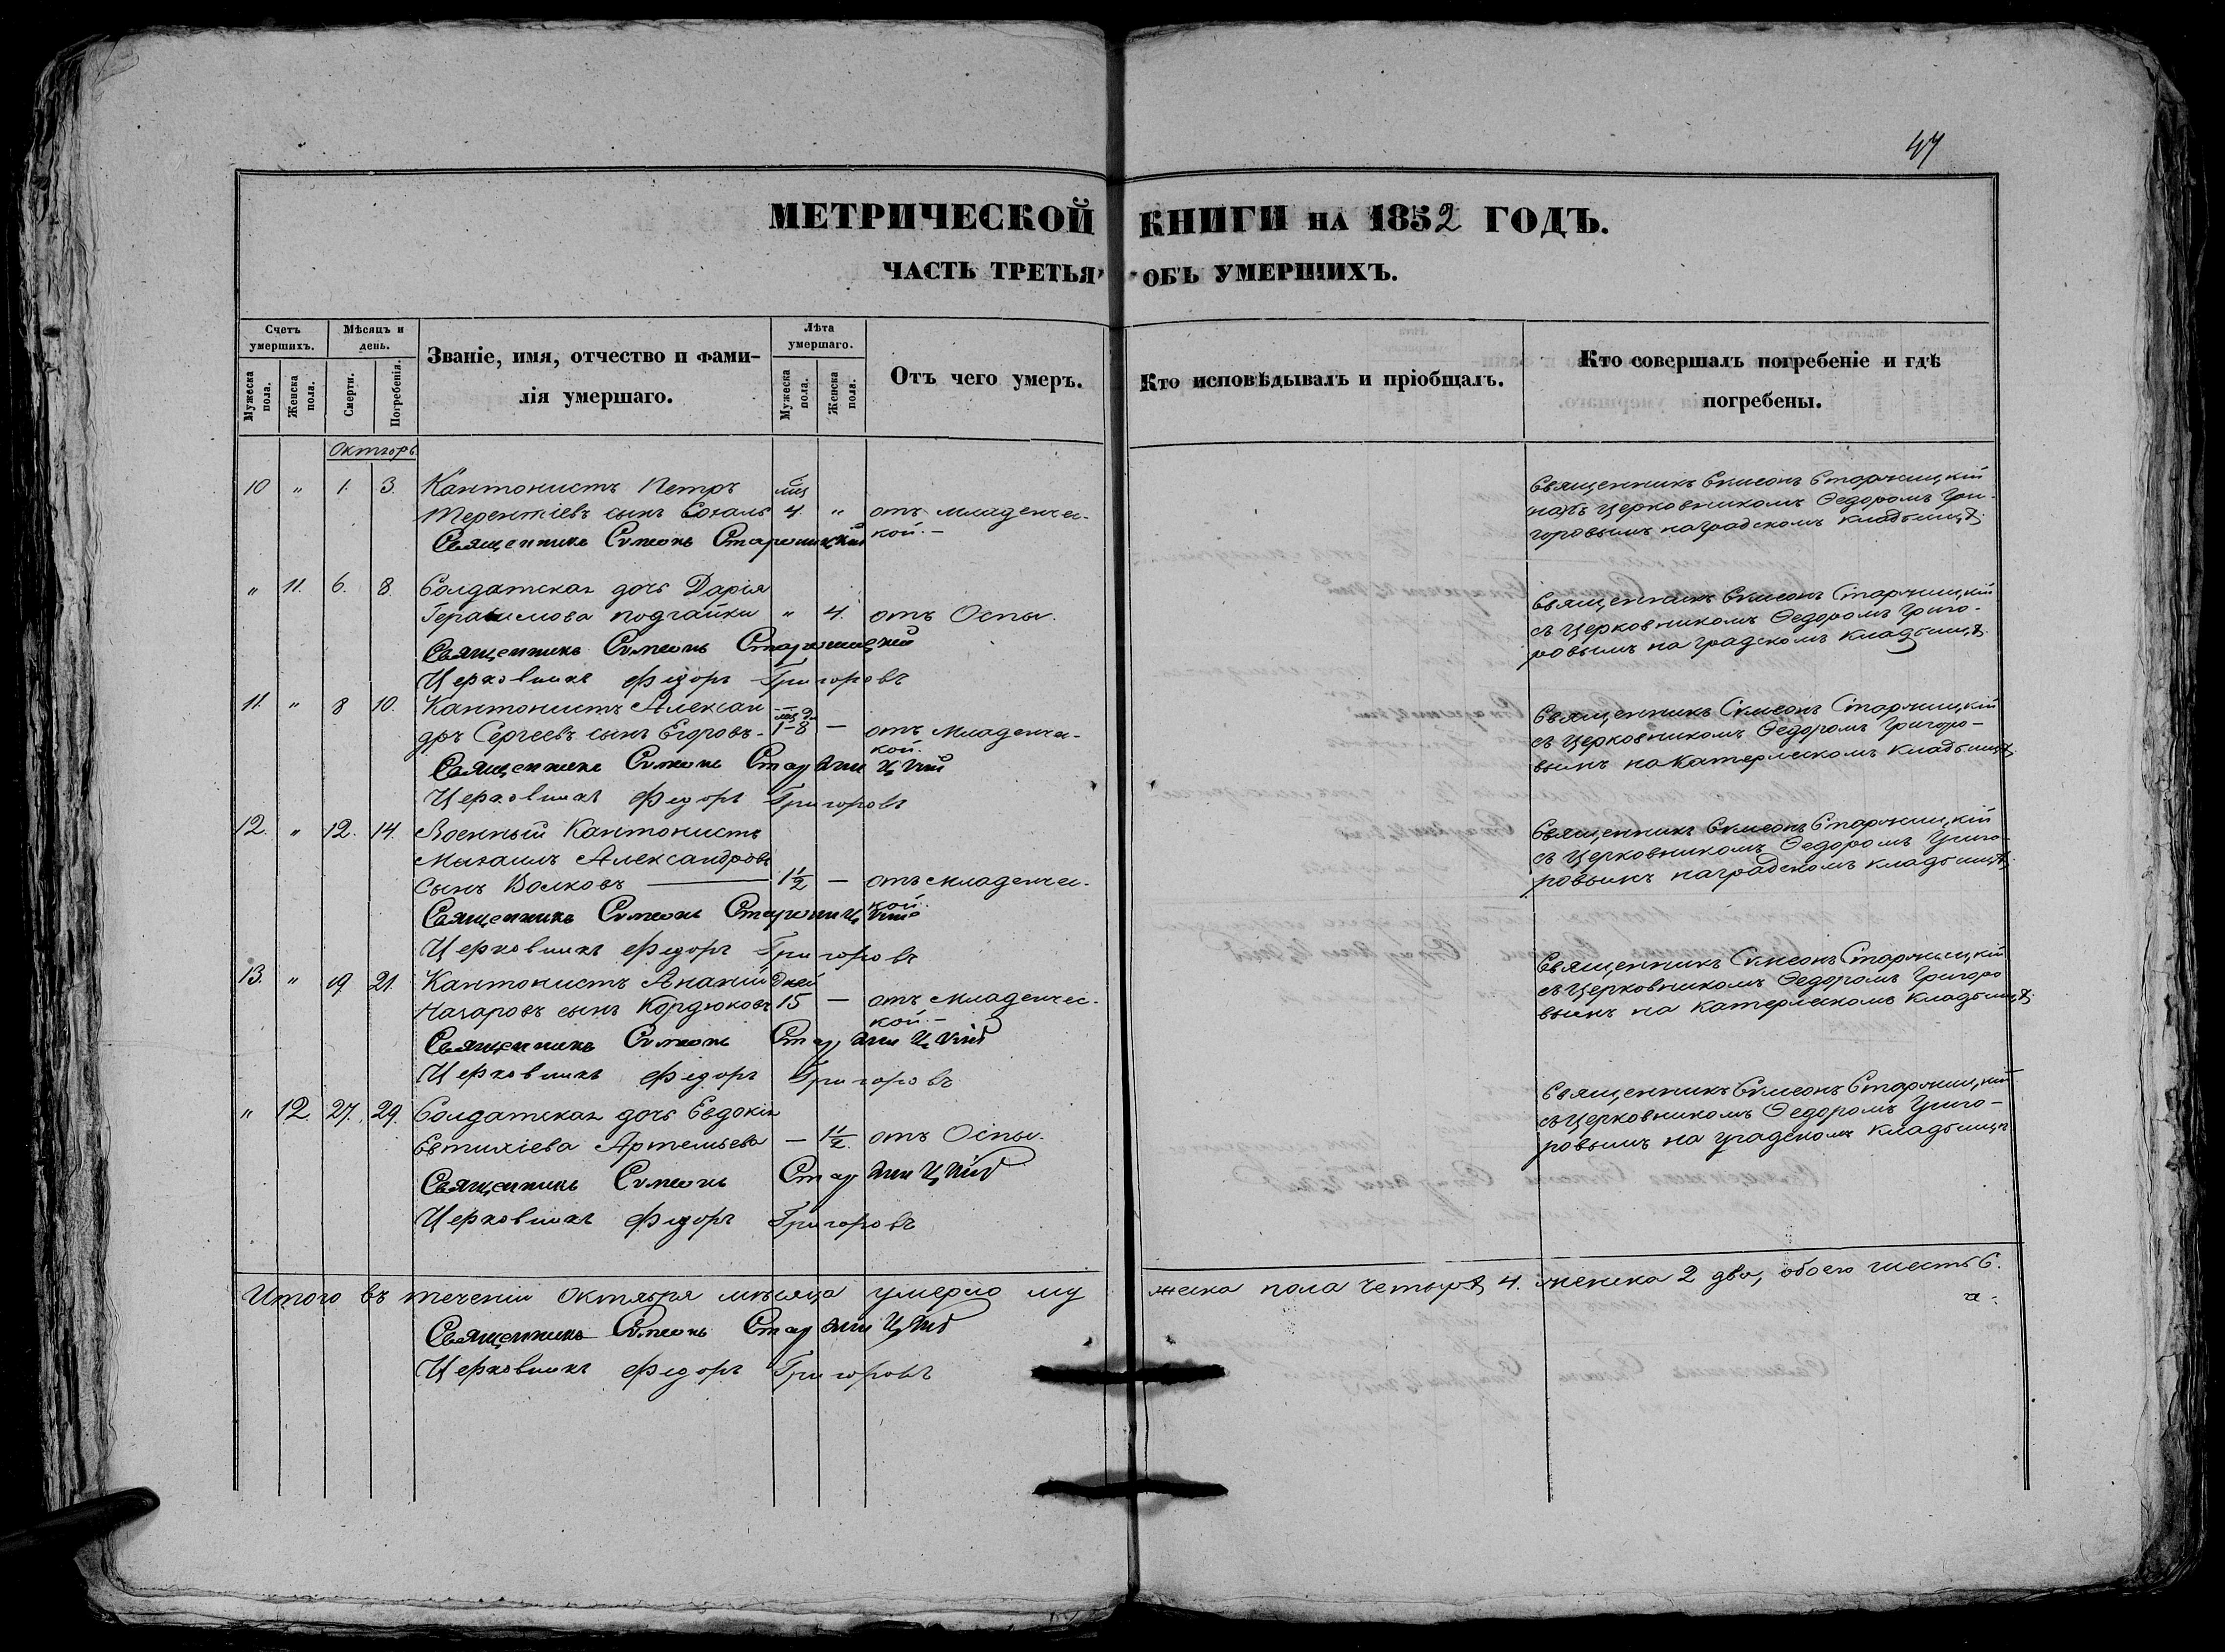 47
МЕТРИЧЕСКОЙ КНИГИ НА 1852 ГОДЪ.
ЧАСТЬ ТРЕТЬЯ ОБЪ УМЕРШИХЪ.
Счетъ умершихъ.
Мужеска пола.
Женска пола.
Мѣсяцъ и день.
Смерти.
Погребенія.
Званіе, имя, отчество и фами-
лія умершаго.
Лѣта умершаго.
Мужеска пола.
Женска пола.
Отъ чего умеръ.
Кто исповѣдывалъ и пріобщалъ.
Кто совершалъ погребеніе и гдѣ
погребены.
10 " 1. 3. Кантонистъ Петръ
Терентіевъ сынъ 4. " отъ младенчес-
кой. -
Священникъ Симеонъ Старчицкій
Священникъ Симеонъ Старчицкій
церковникомъ Ѳедоромъ Гри-
горовымъ на градскомъ кладбищѣ.
" 11. 6. 8. Солдатская дочь Дарія
Герасимова " 4. отъ Оспы.
Священникъ Симеонъ Старчицкій
Церковникъ Федоръ Григоровъ
Священникъ Симеонъ Старчицкій
съ церковникомъ Ѳедоромъ Григо-
ровымъ на градскомъ кладбищѣ.
11. " 8 10. Кантонистъ Алексан
дръ Сергеевъ сынъ Егоровъ- 1-8 — отъ младенчес-
кой.
Священникъ Симеонъ Старчицкій
Церковникъ Федоръ Григоровъ
Священникъ Симеонъ Старчицкій
съ церковникомъ Ѳедоромъ Григоро-
вымъ на кладбищѣ.
12. " 12. 14. Военный Кантонистъ
Михаилъ Александровъ
сынъ Волковъ 1 1/2 — отъ младенчес-
кой.
Священникъ Симеонъ Старчицкій
Церковникъ Федоръ Григоровъ
Священникъ Симеонъ Старчицкій
съ церковникомъ Ѳедоромъ Григо-
ровымъ на градскомъ кладбищѣ.
13. " 19 21. Кантонистъ Ананій Дней
Назаровъ сынъ Кордюковъ 15 — отъ младенчес-
кой.-
Священникъ Симеонъ Старчицкій
Церковникъ Федоръ Григоровъ
Священникъ Симеонъ Старчицкій
съ церковникомъ Ѳедоромъ Григоро
вымъ на кладбищѣ.
" 12 27. 29. Солдатская дочь Евдокія
Евтихіева Артемьева — 1 1/2. отъ Оспы.
Священникъ Симеонъ Старчицкій
Церковникъ Федоръ Григоровъ
Священникъ Симеонъ Старчицкій
съ церковникомъ Ѳедоромъ Григо-
ровымъ на градскомъ кладбищѣ
Итого въ теченіи Октября мѣсяца умерло му
жеска пола четыре 4. женска 2 два, обоего шесть 6.
Священникъ Симеонъ Старчицкій
Церковникъ Федоръ Григоровъ